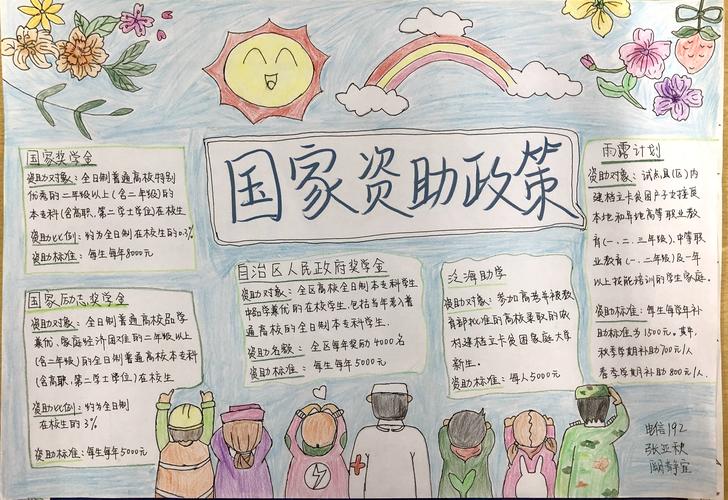 国家资助政策
国家奖学金
资助对象：全日制普通高校特别
优秀的二年级以上（含二年级）的
本专科（含高职、第二学士学位）在校生
资助比例：约为全日制在校生的0.3%
资助标准：每生每年8000元
国家励志奖学金
资助对象：全日制普通高校品学
兼优、家庭经济困难的二年级以上
（含二年级）的全日制普通高校本专科
（含高职、第二学士学位）在校生
资助比例：约为全日制
在校生的3%
资助标准：每生每年5000元
自治区人民政府奖学金
资助对象：全区高校全日制本专科学生
中品学兼优的在校学生，包括当年考入普
通高校的全日制本专科学生。
资助名额：全区每年奖励4000名
资助标准：每生每年5000元
泛海助学
资助对象：参加高考并被教
育部批准的高校录取的农
村建档立卡贫困家庭大学
新生。
资助标准：每人5000元
雨露计划
资助对象：试点县（区）内
建档立卡贫困户子女接受
本地和异地高等职业教
育（一、二、三年级）、中等职
业教育（一、二年级）及一年
以上技能培训的学生家庭。
资助标准：每生每学年补
助标准为1500元。其中，
秋季学期补助700元/人
春季学期补助800元/人.
电信192
张亚秋
静宜